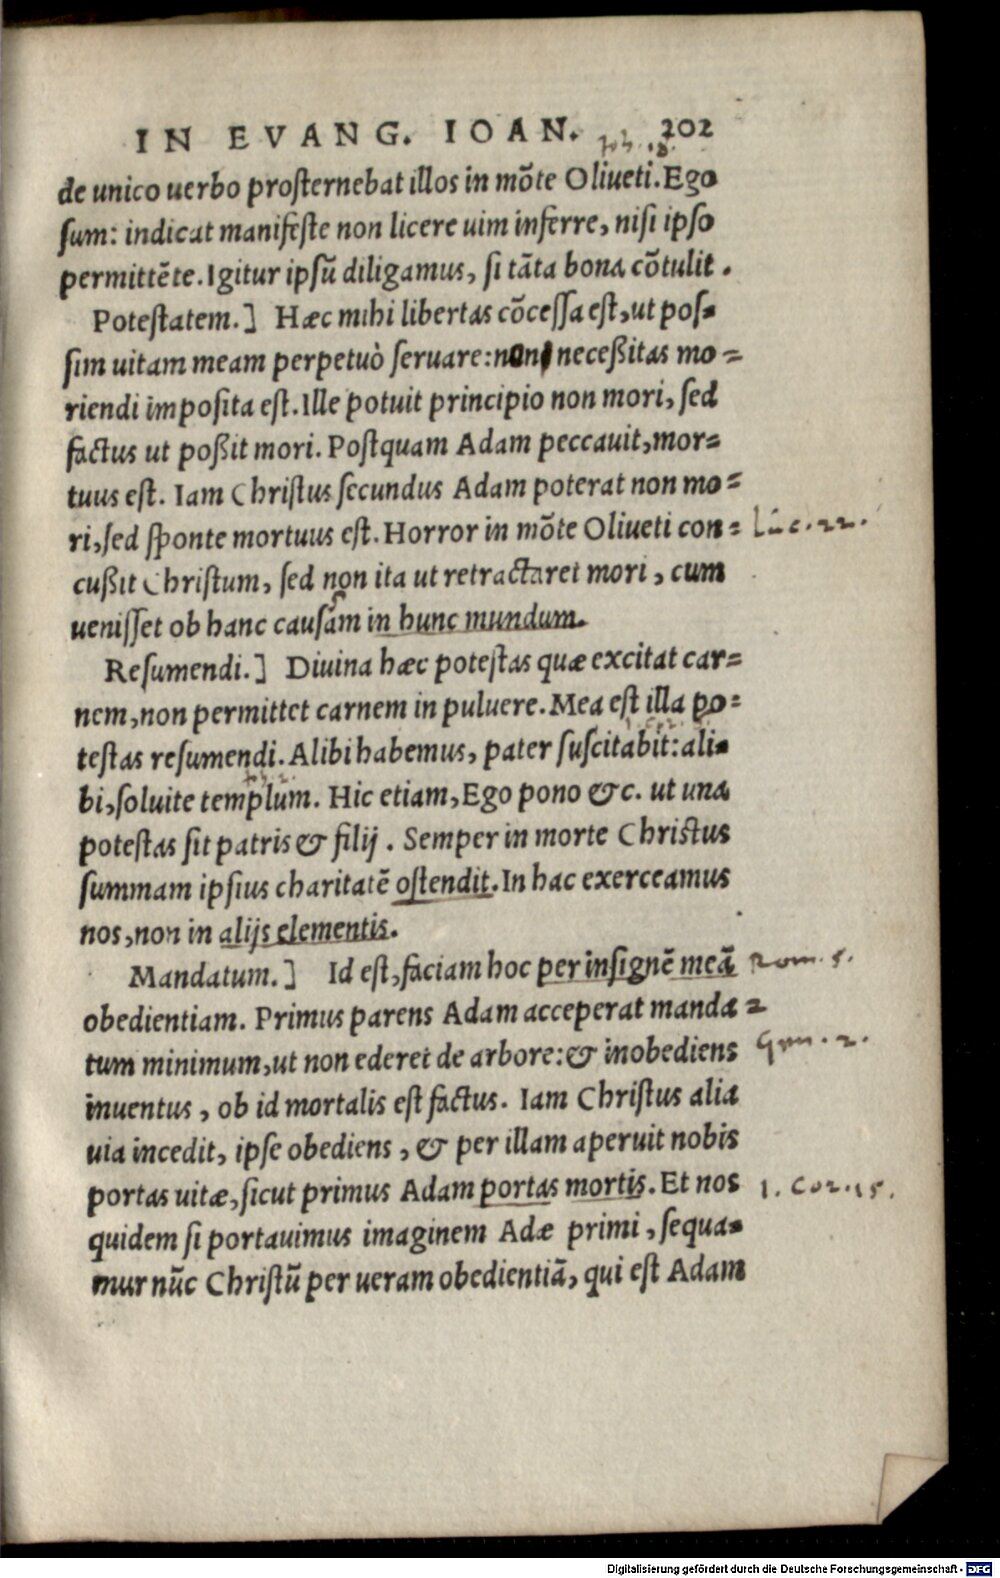 IN EVANG. IOAN. 202
Joh. 18.
de unico uerbo prosternebat illos in mōte Oliueti. Ego
sum: indicat manifeste non licere uim inferre, nisi ipso
permittēte. Igitur ipsū diligamus, si tāta bona cōtulit.
Potestatem.] Hæc mihi libertas cōcessa est, ut pos-
sim uitam meam perpetuò seruare: non necessitas mo-
riendi imposita est. Ille potuit principio non mori, sed
factus ut possit mori. Postquam Adam peccauit, mor-
tuus est. Iam Christus secundus Adam poterat non mo-
ri, sed sponte mortuus est. Horror in mōte Oliueti con- Luc. 22.
cussit Christum, sed non ita ut retractaret mori, cum
uenisset ob hanc causam in hunc mundum.
Resumendi.] Diuina hæc potestas quæ excitat car-
nem, non permittet carnem in puluere. Mea est illa po-
testas resumendi. Alibi habemus, pater suscitabit: ali-
Joh. 2.
bi, soluite templum. Hic etiam, Ego pono &c. ut una
potestas sit patris & filij. Semper in morte Christus
summam ipsius charitatē ostendit. In hac exerceamus
nos, non in alijs elementis.
Mandatum.] Id est, faciam hoc per insignē meā Rom. 5.
obedientiam. Primus parens Adam acceperat manda-
tum minimum, ut non ederet de arbore: & inobediens Gen. 2.
inuentus, ob id mortalis est factus. Iam Christus alia
uia incedit, ipse obediens, & per illam aperuit nobis
portas uitæ, sicut primus Adam portas mortis. Et nos 1. Cor. 15.
quidem si portauimus imaginem Adæ primi, sequa-
mur nūc Christū per ueram obedientiā, qui est Adam
Digitalisierung gefördert durch die Deutsche Forschungsgemeinschaft - DFG